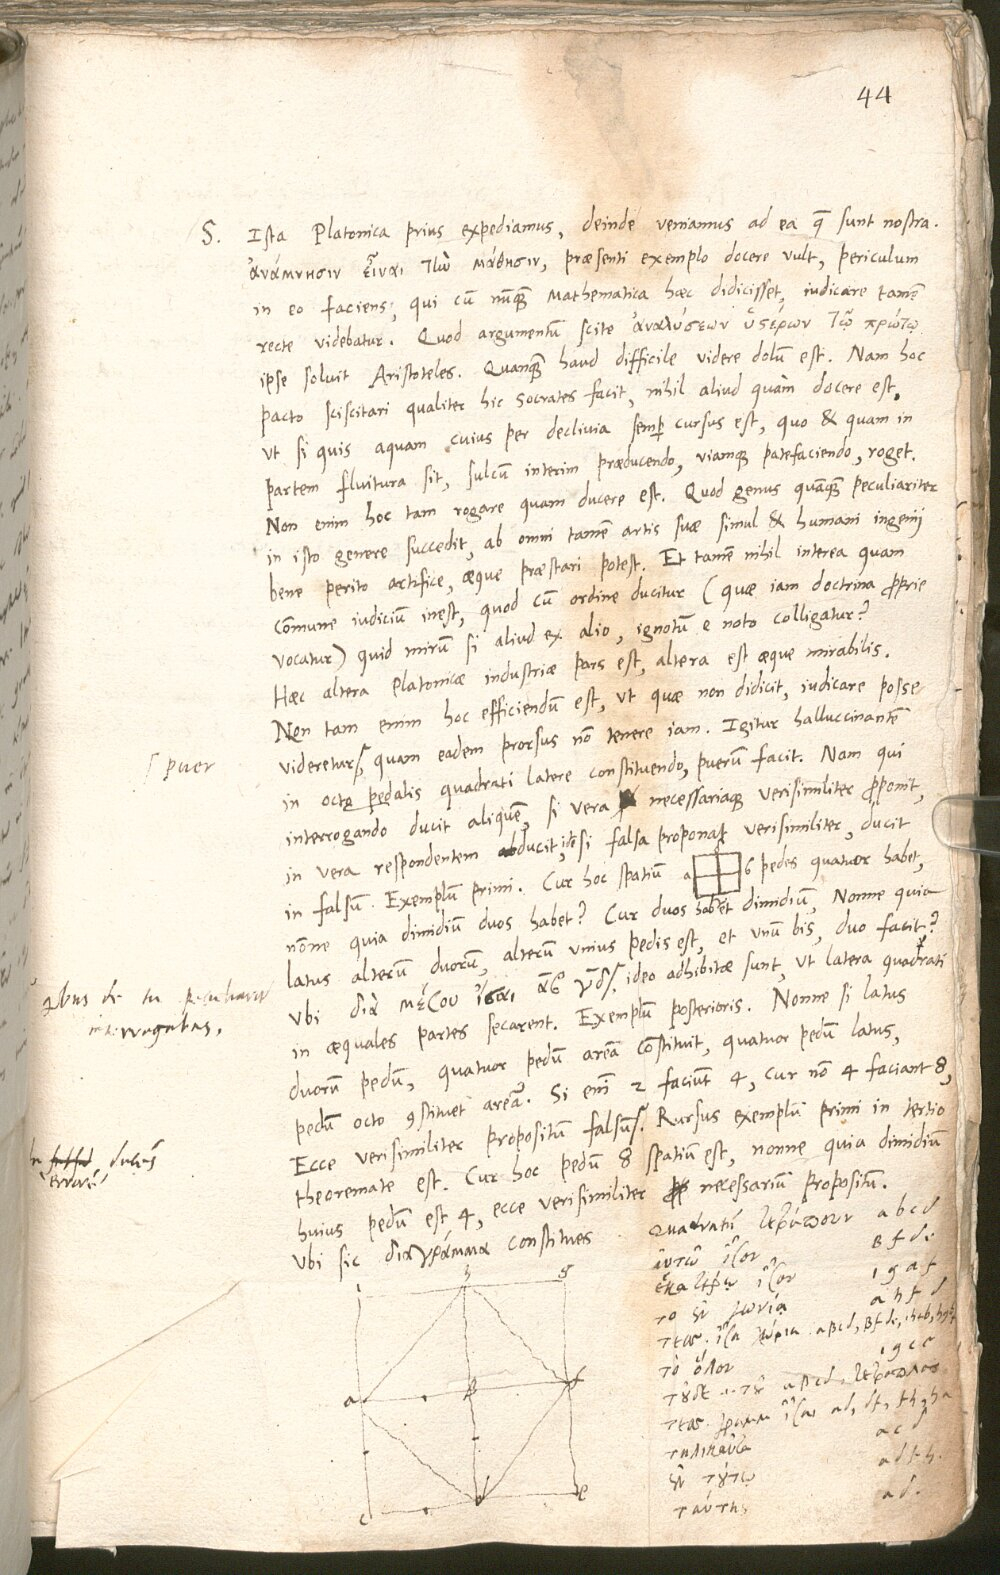 44
S. Ista Platonica prius expediamus, deinde veniamus ad ea q̃ sunt nostra.
ἀνάμνησιν εἶναι τὴν μάθησιν, præsenti exemplo docere vult, periculum
in eo faciens, qui cũ nũq̃ Mathematica hæc didicisset, iudicare tamẽ
recte videbatur. Quod argumentũ scite ἀναλύσεων ὑστέρων τῷ πρώτῳ
ipse soluit Aristoteles. Quanq̃ haud difficile videre dolũ est. Nam hoc
pacto sciscitari qualiter hic Socrates facit, nihil aliud quàm docere est,
vt si quis aquam cuius per declivia semp cursus est, quo & quam in
partem fluitura sit, sulcũ interim præducendo, viamq patefaciendo, roget.
Non enim hoc tam rogare quam ducere est. Quod genus quãq̃ peculiariter
in isto genere succedit, ab omni tamẽ artis suæ simul & humani ingenij
bene perito artifice, æque præstari potest. Et tamẽ nihil interea quam
cõmune iudiciũ inest, quod cũ ordine ducitur (quæ iam doctrina proprie
vocatur) quid mirũ si aliud ex alio, ignotũ e noto colligatur?
Hæc altera Platonicæ industriæ pars est, altera est æque mirabilis.
Non tam enim hoc efficiendũ est, vt quæ non didicit, iudicare posse
videretur, quam eadem prorsus nõ tenere iam. Igitur halluccinantẽ
puer
in octo pedalis quadrati latere constituendo, puerũ facit. Nam qui
interrogando ducit aliquẽ, si vera necessariaq verisimiliter proponit,
in vera respondentem ducit, itẽ si falsa proponat verisimiliter, ducit
in falsũ. Exemplũ primi. Cur hoc spatiũ a 6 pedes quatuor habet,
nõnne quia dimidiũ duos habet? Cur duos habet dimidiũ, Nonne quia
latus alterũ duorũ, alterũ vnius pedis est, et vnũ bis, duo facit?
vbi διὰ μέσου ἴσαι αβ γδ ideo adhibitæ sunt, vt latera quadrati
interrogatas,
in æquales partes secarent. Exemplũ posterioris. Nonne si latus
duorũ pedũ, quatuor pedũ areã constituit, quatuor pedũ latus,
pedũ octo 9stituet areã. Si enĩ 2 faciũt 4, cur nõ 4 faciant 8,
errorẽ ducẽs
Ecce verisimiliter propositũ falsũ. Rursus exemplũ primi in tertio
theoremate est. Cur hoc pedũ 8 spatiũ est, nonne quia dimidiũ
huius pedũ est 4, ecce verisimiliter necessariũ propositũ.
vbi sic διαγράμματα constitues
Quadratũ τετράπουν a b c d
τούτῳ ἴσον B f d e
ἑκατέρῳ ἴσον i g a f
a h f d
τὸ ὅλον i g c e
a c d
a d f h
ταύτης a d.
i h g
a B f
c d e